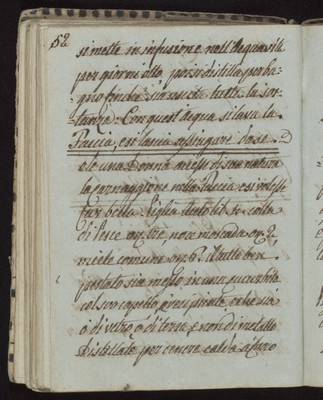 52
si mette in infusione nell'Acquavite
per giorni otto, poi si distilla per ba-
gno finchè sia uscita tutta la sos-
tanza. Con quest'acqua si lava la
Faccia, e si lascia asciugare da se
e le una Donna avesse di sua natura
la carnaggione nella Faccia e si volesse
far bella Piglia
di Pesce on. tre, noce moscada on. 2,
miele comune on. il tutto ben
pestato sia messo in una cucurbita
col suo capello, e recipiente, che sia
o di vetro, o di terra, e non di metallo
Distillate per cenere calda a fuoco